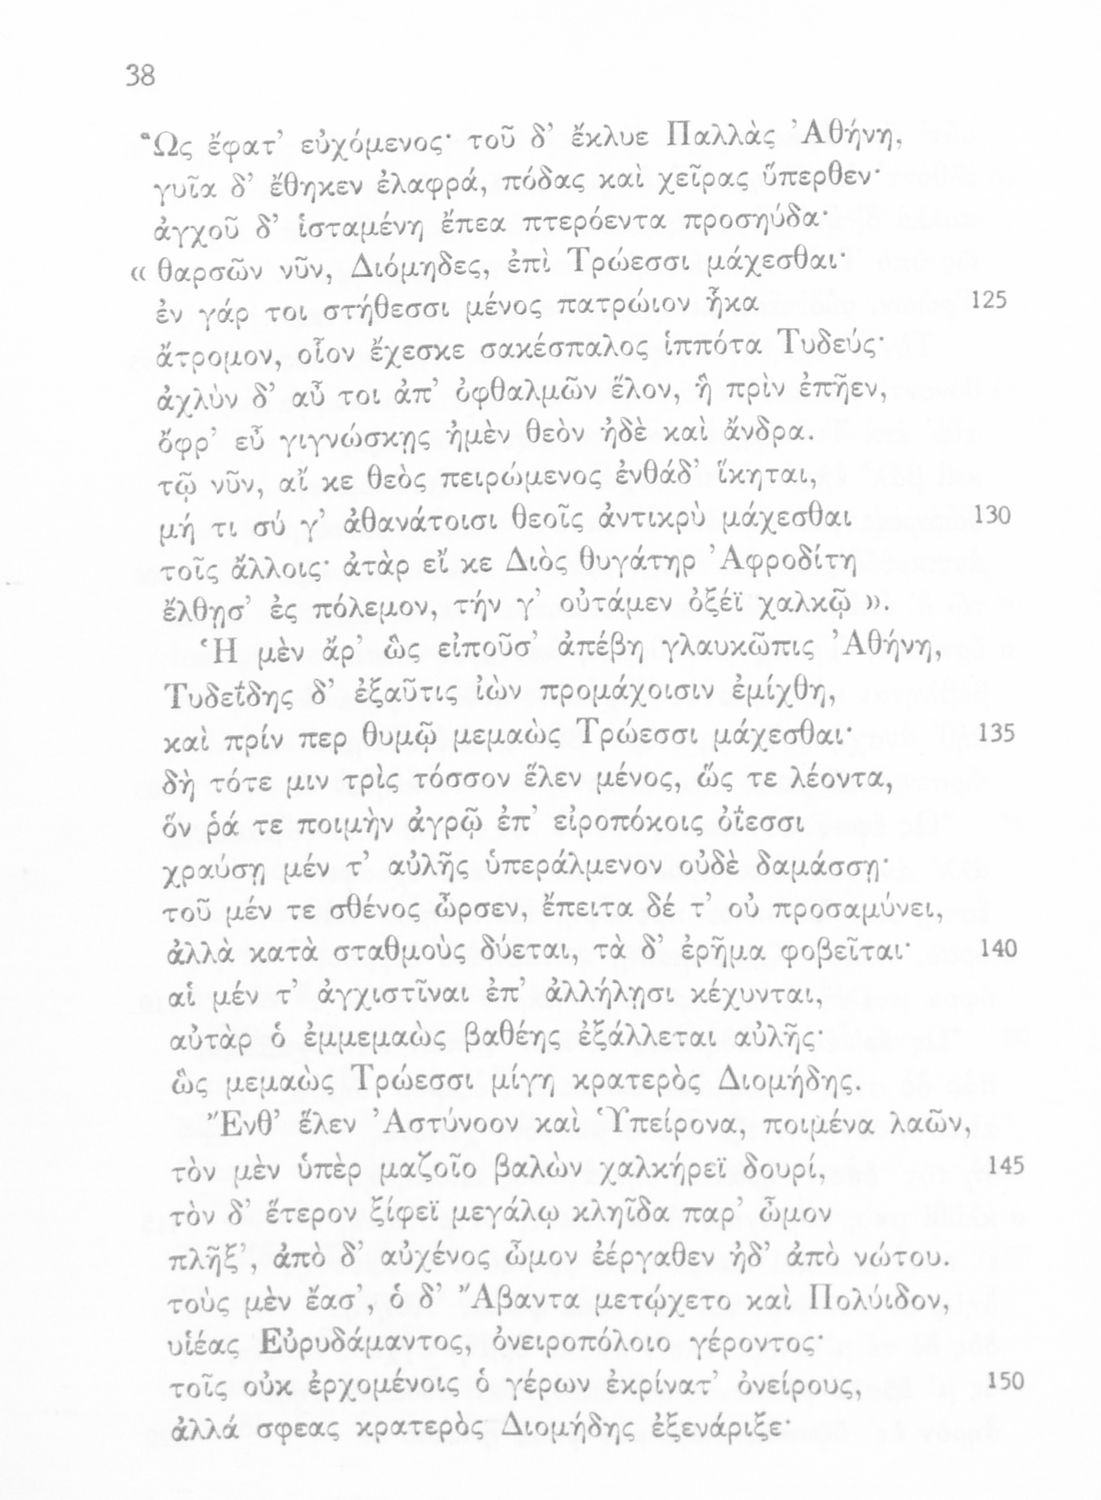 38
Ὣς ἔφατ’ εὐχόμενος· τοῦ δ’ ἔκλυε Παλλὰς Ἀθήνη,
γυῖα δ’ ἔθηκεν ἐλαφρά, πόδας καὶ χεῖρας ὕπερθεν·
ἀγχοῦ δ’ ἱσταμένη ἔπεα πτερόεντα προσηύδα·
« θαρσῶν νῦν, Διόμηδες, ἐπὶ Τρώεσσι μάχεσθαι·
ἐν γάρ τοι στήθεσσι μένος πατρώιον ἧκα 125
ἄτρομον, οἷον ἔχεσκε σακέσπαλος ἱππότα Τυδεύς·
ἀχλὺν δ’ αὖ τοι ἀπ’ ὀφθαλμῶν ἕλον, ἣ πρὶν ἐπῆεν,
ὄφρ’ εὖ γιγνώσκῃς ἠμὲν θεὸν ἠδὲ καὶ ἄνδρα.
τῷ νῦν, αἴ κε θεὸς πειρώμενος ἐνθάδ’ ἵκηται,
μή τι σύ γ’ ἀθανάτοισι θεοῖς ἀντικρὺ μάχεσθαι 130
τοῖς ἄλλοις· ἀτὰρ εἴ κε Διὸς θυγάτηρ Ἀφροδίτη
ἔλθῃσ’ ἐς πόλεμον, τήν γ’ οὐτάμεν ὀξέϊ χαλκῷ ».
Ἡ μὲν ἄρ’ ὣς εἰποῦσ’ ἀπέβη γλαυκῶπις Ἀθήνη,
Τυδεΐδης δ’ ἐξαῦτις ἰὼν προμάχοισιν ἐμίχθη,
καὶ πρίν περ θυμῷ μεμαὼς Τρώεσσι μάχεσθαι· 135
δὴ τότε μιν τρὶς τόσσον ἕλεν μένος, ὥς τε λέοντα,
ὅν ῥά τε ποιμὴν ἀγρῷ ἐπ’ εἰροπόκοις ὀΐεσσι
χραύσῃ μέν τ’ αὐλῆς ὑπεράλμενον οὐδὲ δαμάσσῃ·
τοῦ μέν τε σθένος ὦρσεν, ἔπειτα δέ τ’ οὐ προσαμύνει,
ἀλλὰ κατὰ σταθμοὺς δύεται, τὰ δ’ ἐρῆμα φοβεῖται· 140
αἱ μέν τ’ ἀγχιστῖναι ἐπ’ ἀλλήλῃσι κέχυνται,
αὐτὰρ ὁ ἐμμεμαὼς βαθέης ἐξάλλεται αὐλῆς·
ὣς μεμαὼς Τρώεσσι μίγη κρατερὸς Διομήδης.
Ἔνθ’ ἕλεν Ἀστύνοον καὶ Ὑπείρονα, ποιμένα λαῶν,
τὸν μὲν ὑπὲρ μαζοῖο βαλὼν χαλκήρεϊ δουρί, 145
τὸν δ’ ἕτερον ξίφεϊ μεγάλῳ κληῖδα παρ’ ὦμον
πλῆξ’, ἀπὸ δ’ αὐχένος ὦμον ἐέργαθεν ἠδ’ ἀπὸ νώτου.
τοὺς μὲν ἔασ’, ὁ δ’ Ἄβαντα μετῴχετο καὶ Πολύιδον,
υἱέας Εὐρυδάμαντος, ὀνειροπόλοιο γέροντος·
τοῖς οὐκ ἐρχομένοις ὁ γέρων ἐκρίνατ’ ὀνείρους, 150
ἀλλά σφεας κρατερὸς Διομήδης ἐξενάριξε·